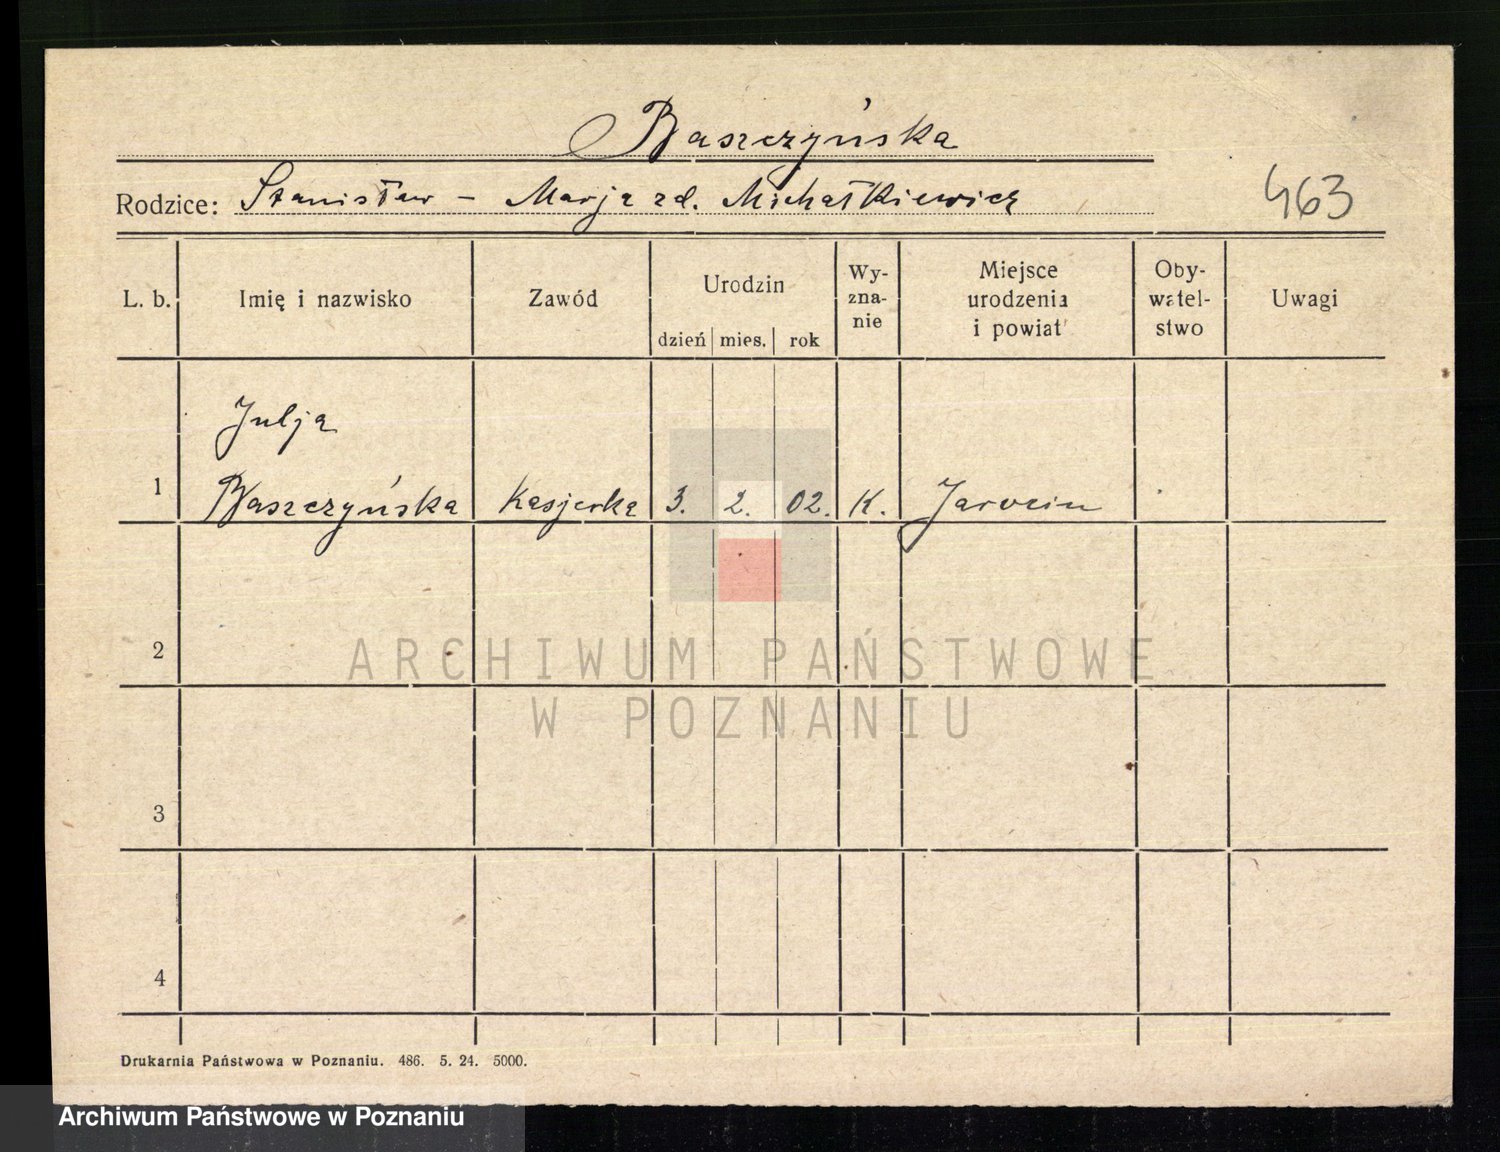 Baszczyńska
Rodzice: Stanisław – Marja zd. Michałkiewicz
463
L. b. Imię i nazwisko Zawód Urodzin dzień mies. rok Wy-zna-nie Miejsce urodzenia i powiat Oby-watel-stwo Uwagi
Julja
1 Baszczyńska Kasjerka 3. 2. 02. K. Jarocin
2
ARCHIWUM PAŃSTWOWE
W POZNANIU
3
4
Drukarnia Państwowa w Poznaniu. 486. 5. 24. 5000.
Archiwum Państwowe w Poznaniu